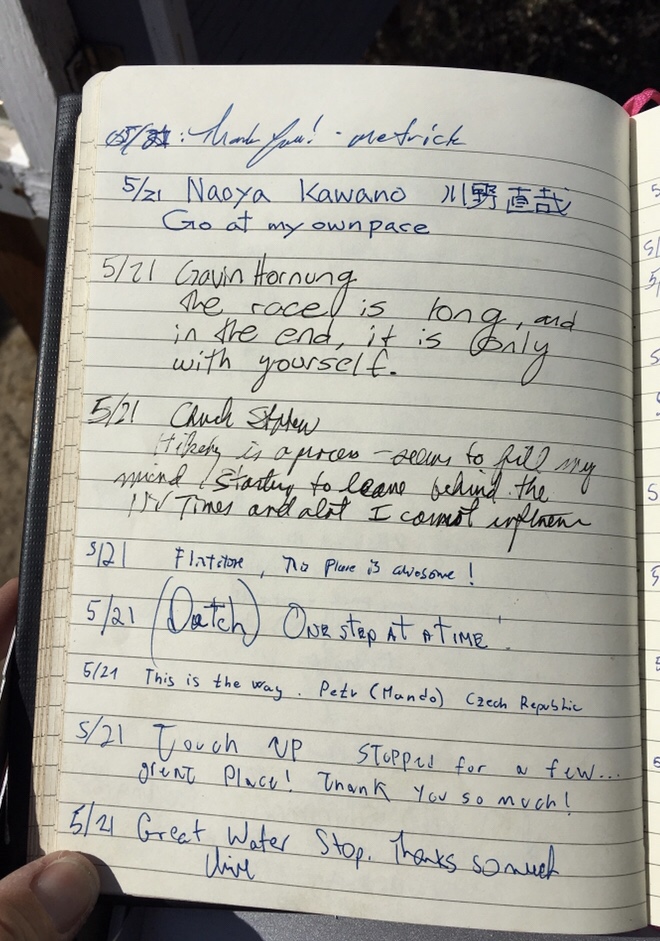 : Thank You! - metrick
5/21 Naoya Kawano 川野 直哉
Go at my own pace
5/21 Gavin Hornung
the race is long, and
in the end, it is only
with yourself.
5/21 Chuck
is a process - seems to fill my
mind Starting to leave behind the
Times and alot I cannot influence
5/21 Flatitore, no place is awesome!
5/21 (Dutch) ONE STEP AT A TIME!
5/21 This is the way. Petr (Mando) Czech Republic
5/21 Touch UP STOPPED for a few...
great Place! Thank You so much!
5/21 Great Water Stop. Thanks so much